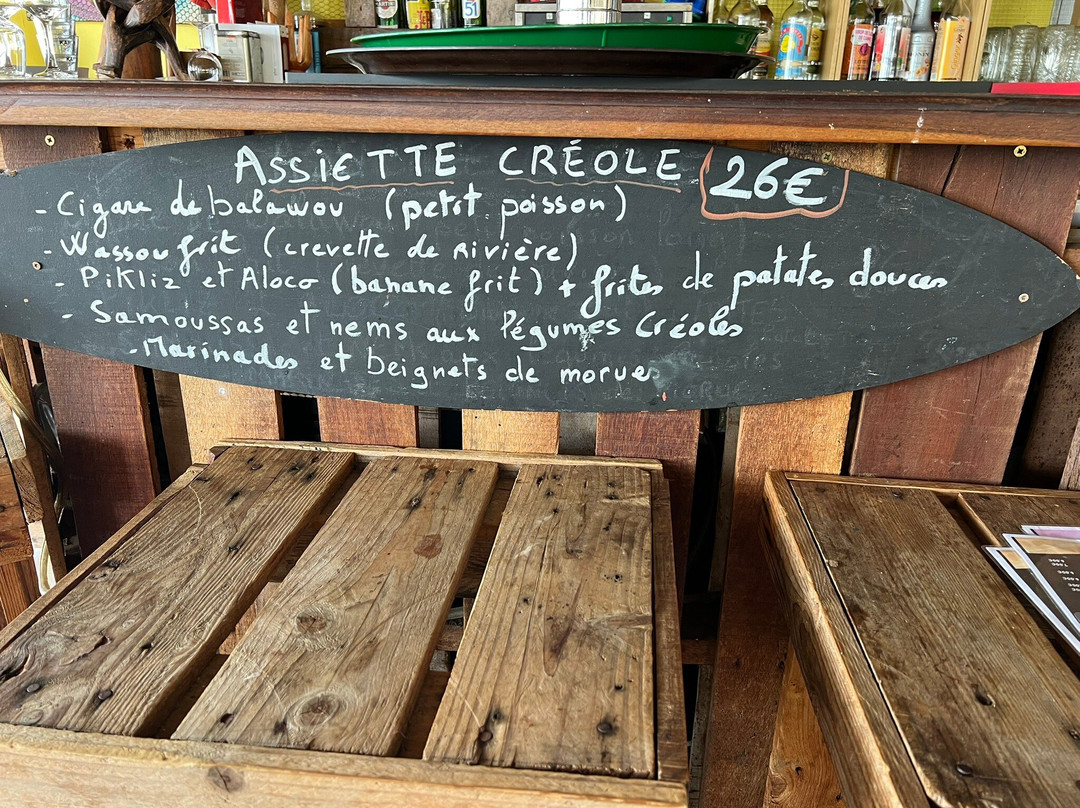 ASSIETTE CRÉOLE 26€
- Cigare de balawou (petit poisson)
- Wassou frit (crevette de Rivière)
- PiKliz et Aloco (banane frit) + frites de patates douces
- Samoussas et nems aux légumes Créoles
- Marinades et beignets de morues